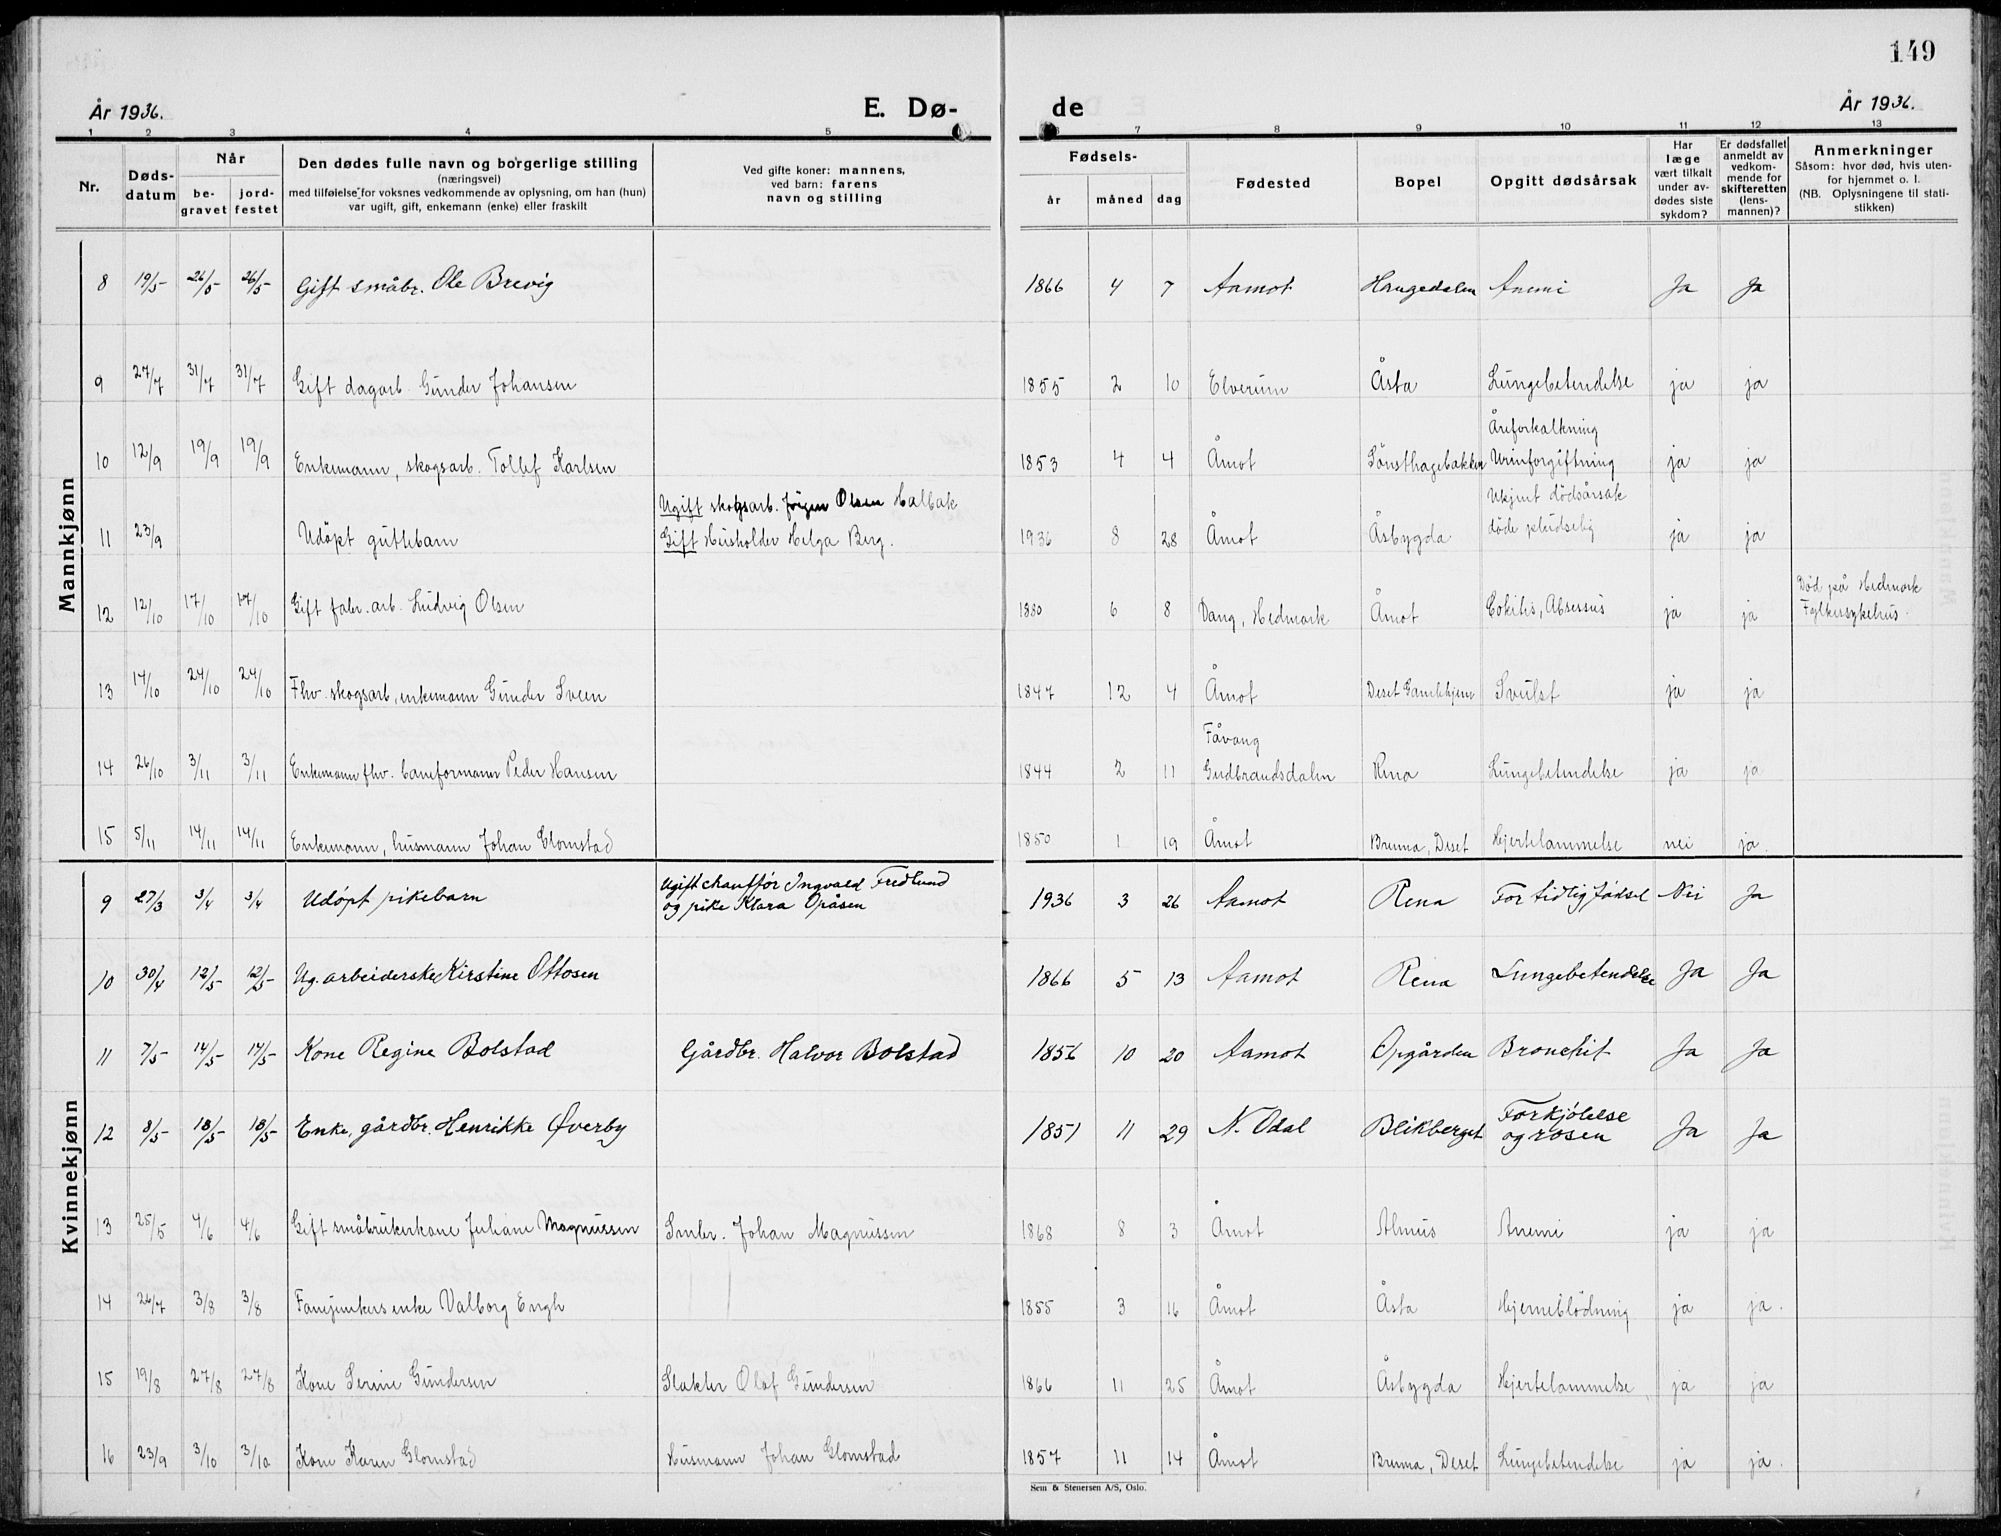 149
År 1936.
E. Dø-
de
År 1936.
1 2 3 4 5 6 7 8 9 10 11 12 13
Nr.
Døds-
datum
Når
be-
gravet
jord-
festet
Den dødes fulle navn og borgerlige stilling
(næringsvei)
med tilføielse for voksnes vedkommende av oplysning, om han (hun)
var ugift, gift, enkemann (enke) eller fraskilt
Ved gifte koner: mannens,
ved barn: farens
navn og stilling
Fødsels-
år måned dag
Fødested
Bopel
Opgitt dødsårsak
Har
læge
vært tilkalt
under av-
dødes siste
sykdom?
Er dødsfallet
anmeldt av
vedkom-
mende for
skifteretten
(lens-
mannen)?
Anmerkninger
Såsom: hvor død, hvis uten-
for hjemmet o. l.
(NB. Oplysningene til stati-
stikken)
Mannkjønn
8 19/5 26/5 26/5 Gift småbr. Ole Brevig 1866 4 7 Aamot Haugedalen Anemi Ja Ja
9 27/7 31/7 31/7 Gift dagarb. Gunder Johansen 1855 2 10 Elverum Åsta Lungebetendelse ja ja
Åreforkalkning
10 12/9 19/9 19/9 Enkemann, skogsarb. Tollef Karlsen 1853 4 4 Åmot Sønsthagebakken Urinforgiftning ja ja
Ugift skogsarb. Jörgen Olsen Halbak Ukjent dödsårsak
11 23/9 Udöpt guttebarn Gift Husholder Helga Berg. 1936 8 28 Åmot Åsbygda döde pludselig ja ja
Död på Hedmark
12 12/10 17/10 17/10 Gift fabr. arb. Ludvig Olsen 1880 6 8 Vang, Hedmark Åmot Colitis, Absessus ja ja Fylkessykehus.
13 14/10 24/10 24/10 Fhv. skogsarb, enkemann Gunder Sveen 1847 12 4 Åmot Deset Gamlehjem Svulst ja ja
Fåvang
14 26/10 3/11 3/11 Enkemann fhv. baneformann Peder Hansen 1844 2 11 Gudbrandsdalen Rena Lungebetendelse ja ja
15 5/11 14/11 14/11 Enkemann, husmann Johan Glomstad 1850 1 19 Åmot Brenna, Deset Hjertelammelse nei ja.
Kvinnekjønn
Ugift chauffør Ingvald Fredlund
9 27/3 3/4 3/4 Udöpt pikebarn og pike Klara Opåsen 1936 3 26 Aamot Rena For tidlig födsel Nei Ja
10 30/4 12/5 12/5 Ug. arbeiderske Kirstine Ottosen 1866 5 13 Aamot Rena Lungebetendelse Ja Ja
11 7/5 14/5 14/5 Kone Regine Bolstad Gårdbr. Halvor Bolstad 1856 10 20 Aamot Opgården Bronchit Ja Ja
Forkjölelse
12 8/5 18/5 18/5 Enke, gårdbr. Henrikke Øverby 1851 11 29 N. Odal Blikberget og rosen Ja Ja
13 25/5 4/6 4/6 Gift småbrukerkone Juliane Magnussen Smbr. Johan Magnussen 1868 8 3 Åmot Almus Anemi ja ja
14 26/7 3/8 3/8 Fanejunkers enke Valborg Engh 1855 3 16 Åmot Åsta Hjerneblödning ja ja.
15 19/8 27/8 27/8 Kone Serine Gundersen Slakter Olaf Gundersen 1866 11 25 Åmot Åsbygda Hjertelammelse ja ja
16 23/9 3/10 3/10 Kone Karen Glomstad Husmann Johan Glomstad 1857 11 14 Åmot Brenna, Deset Lungebetendelse ja ja.
Sem & Stenersen A/S, Oslo.